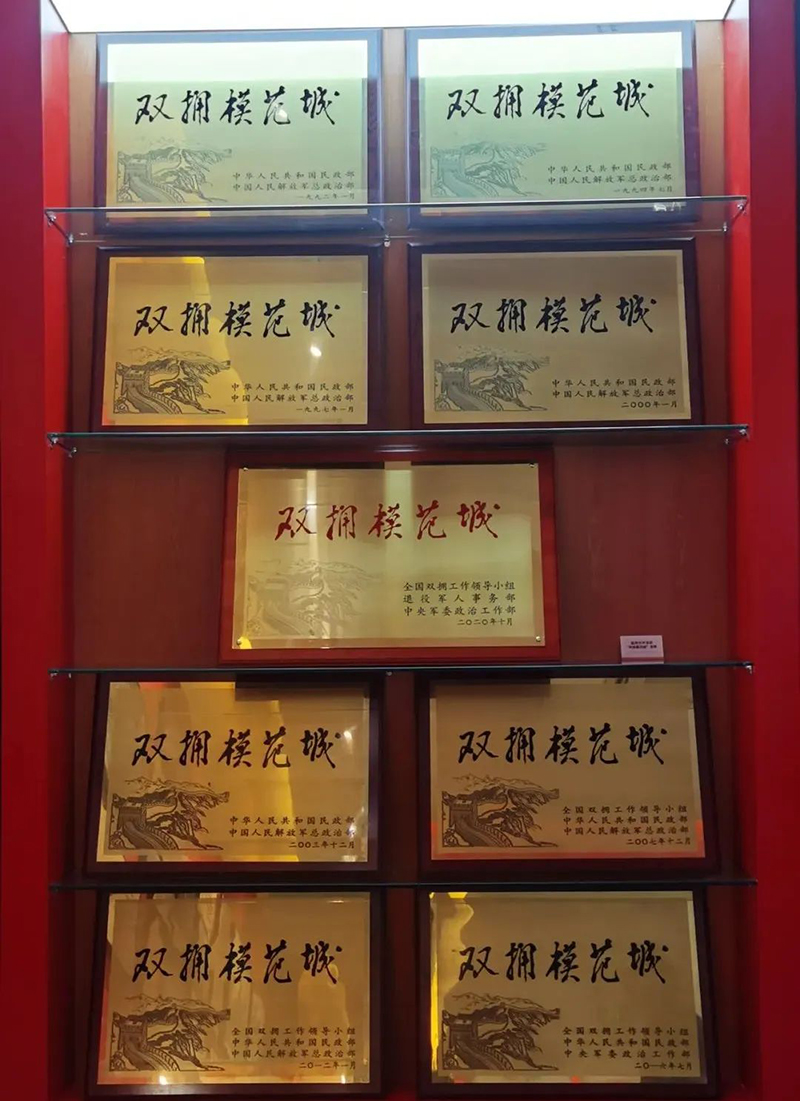 双拥模范城
中华人民共和国民政部
中国人民解放军总政治部
一九九二年一月
双拥模范城
中华人民共和国民政部
中国人民解放军总政治部
一九九四年七月
双拥模范城
中华人民共和国民政部
中国人民解放军总政治部
一九九七年一月
双拥模范城
中华人民共和国民政部
中国人民解放军总政治部
二〇〇〇年一月
双拥模范城
全国双拥工作领导小组
退役军人事务部
中央军委政治工作部
二〇二〇年十月
双拥模范城
中华人民共和国民政部
中国人民解放军总政治部
二〇〇三年十二月
双拥模范城
全国双拥工作领导小组
中华人民共和国民政部
中国人民解放军总政治部
二〇〇七年十二月
双拥模范城
全国双拥工作领导小组
中华人民共和国民政部
中国人民解放军总政治部
二〇一二年一月
双拥模范城
全国双拥工作领导小组
中华人民共和国民政部
中央军委政治工作部
二〇一六年七月